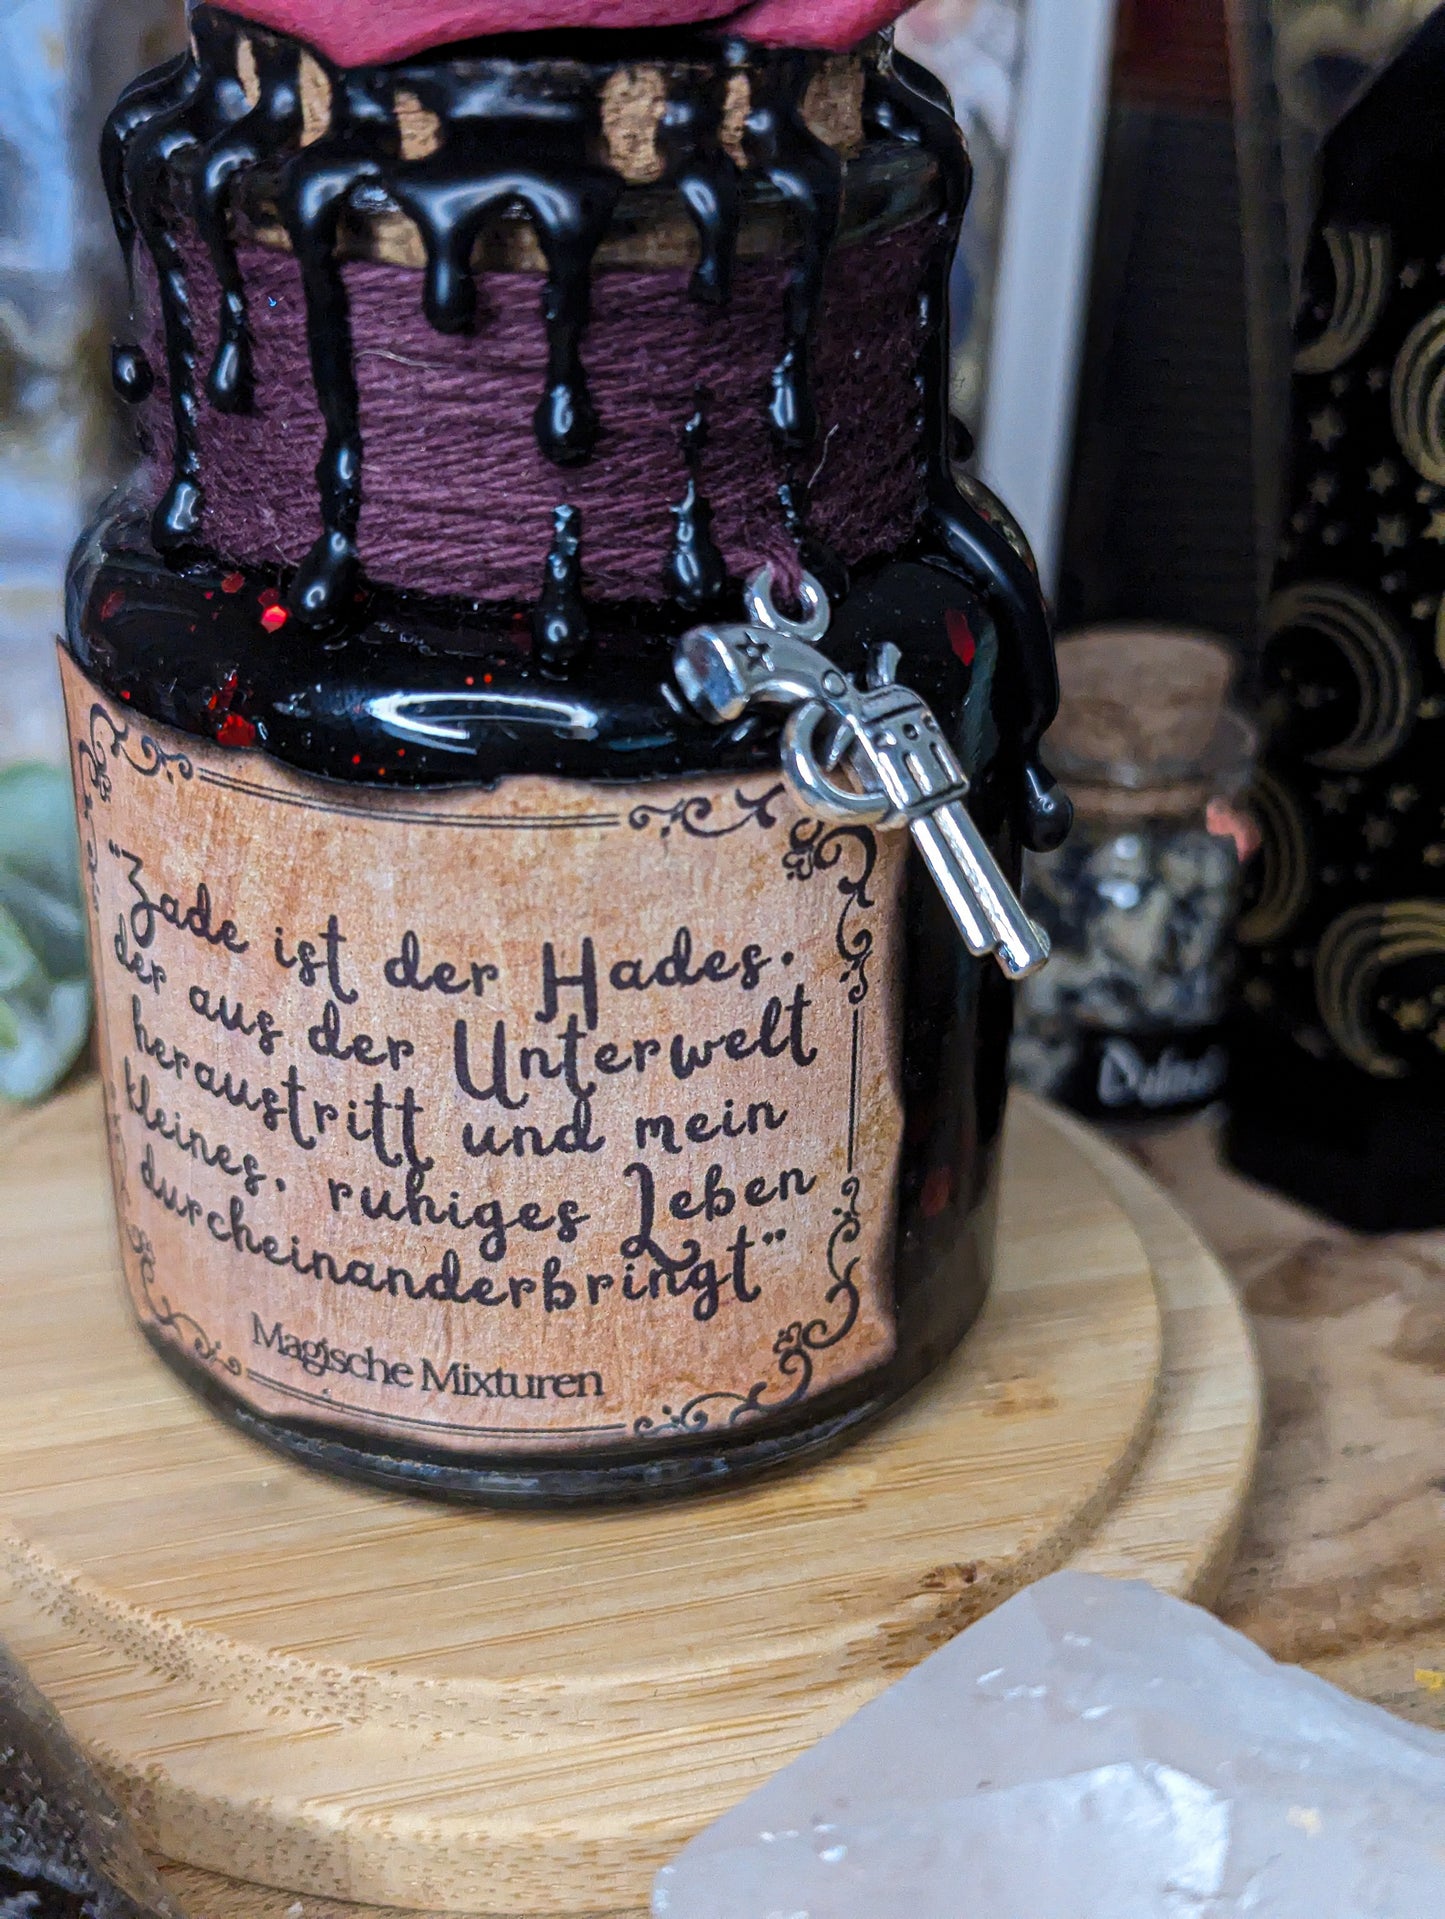 "Zade ist der Hades.
der aus der Unterwelt
heraustritt und mein
kleines, ruhiges Leben
durcheinanderbringt"
Magische Mixturen